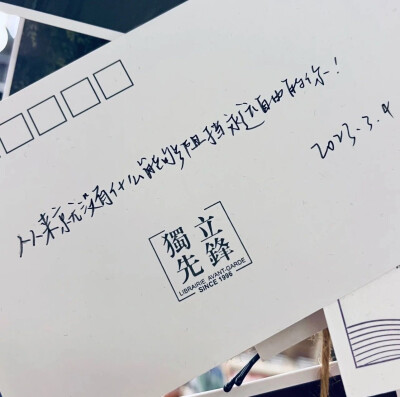 从来就没有什么能够阻挡永远自由的你!
2023.3.9
獨立
先鋒
LIBRAIRIE AVANT-GARDE
SINCE 1996